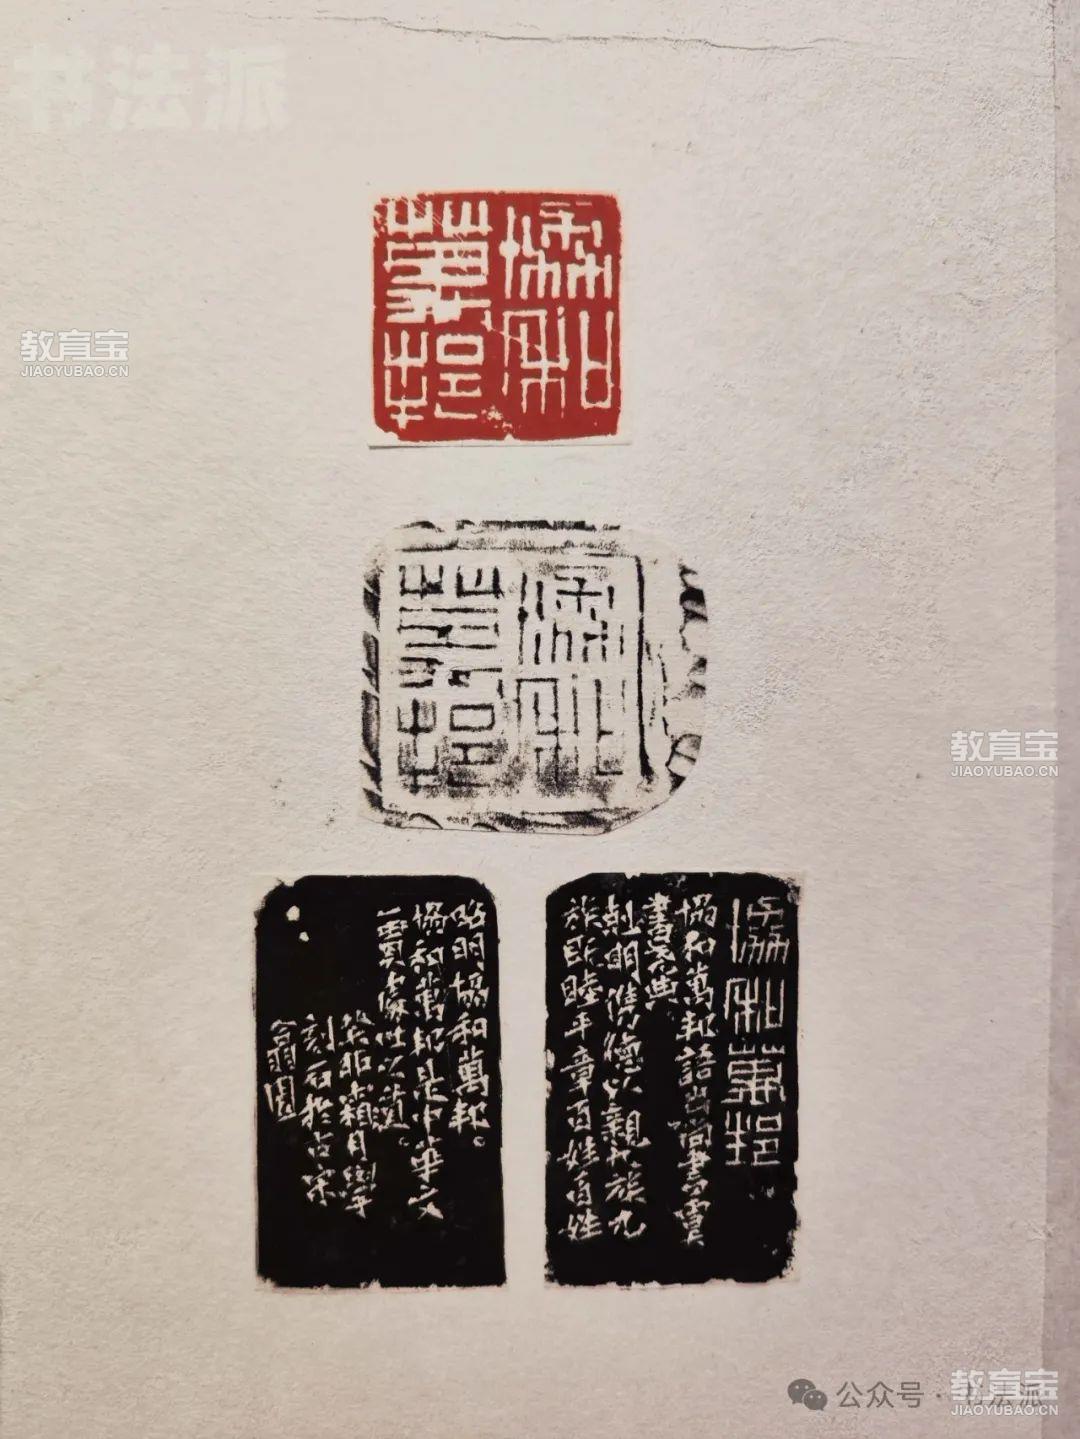 书法派
協和
萬邦
協和
萬邦
協和萬邦
協和萬邦語出尚書虞
書堯典
克明俊德以親九族九
族既睦平章百姓百姓
昭明協和萬邦。
協和萬邦是中華文
一貫處世之道。
癸卯霜月學
刻石於古宋
翕園
教育宝
JIAOYUBAO.CN
教育宝
JIAOYUBAO.CN
公众号·书法派
教育宝
JIAOYUBAO.CN